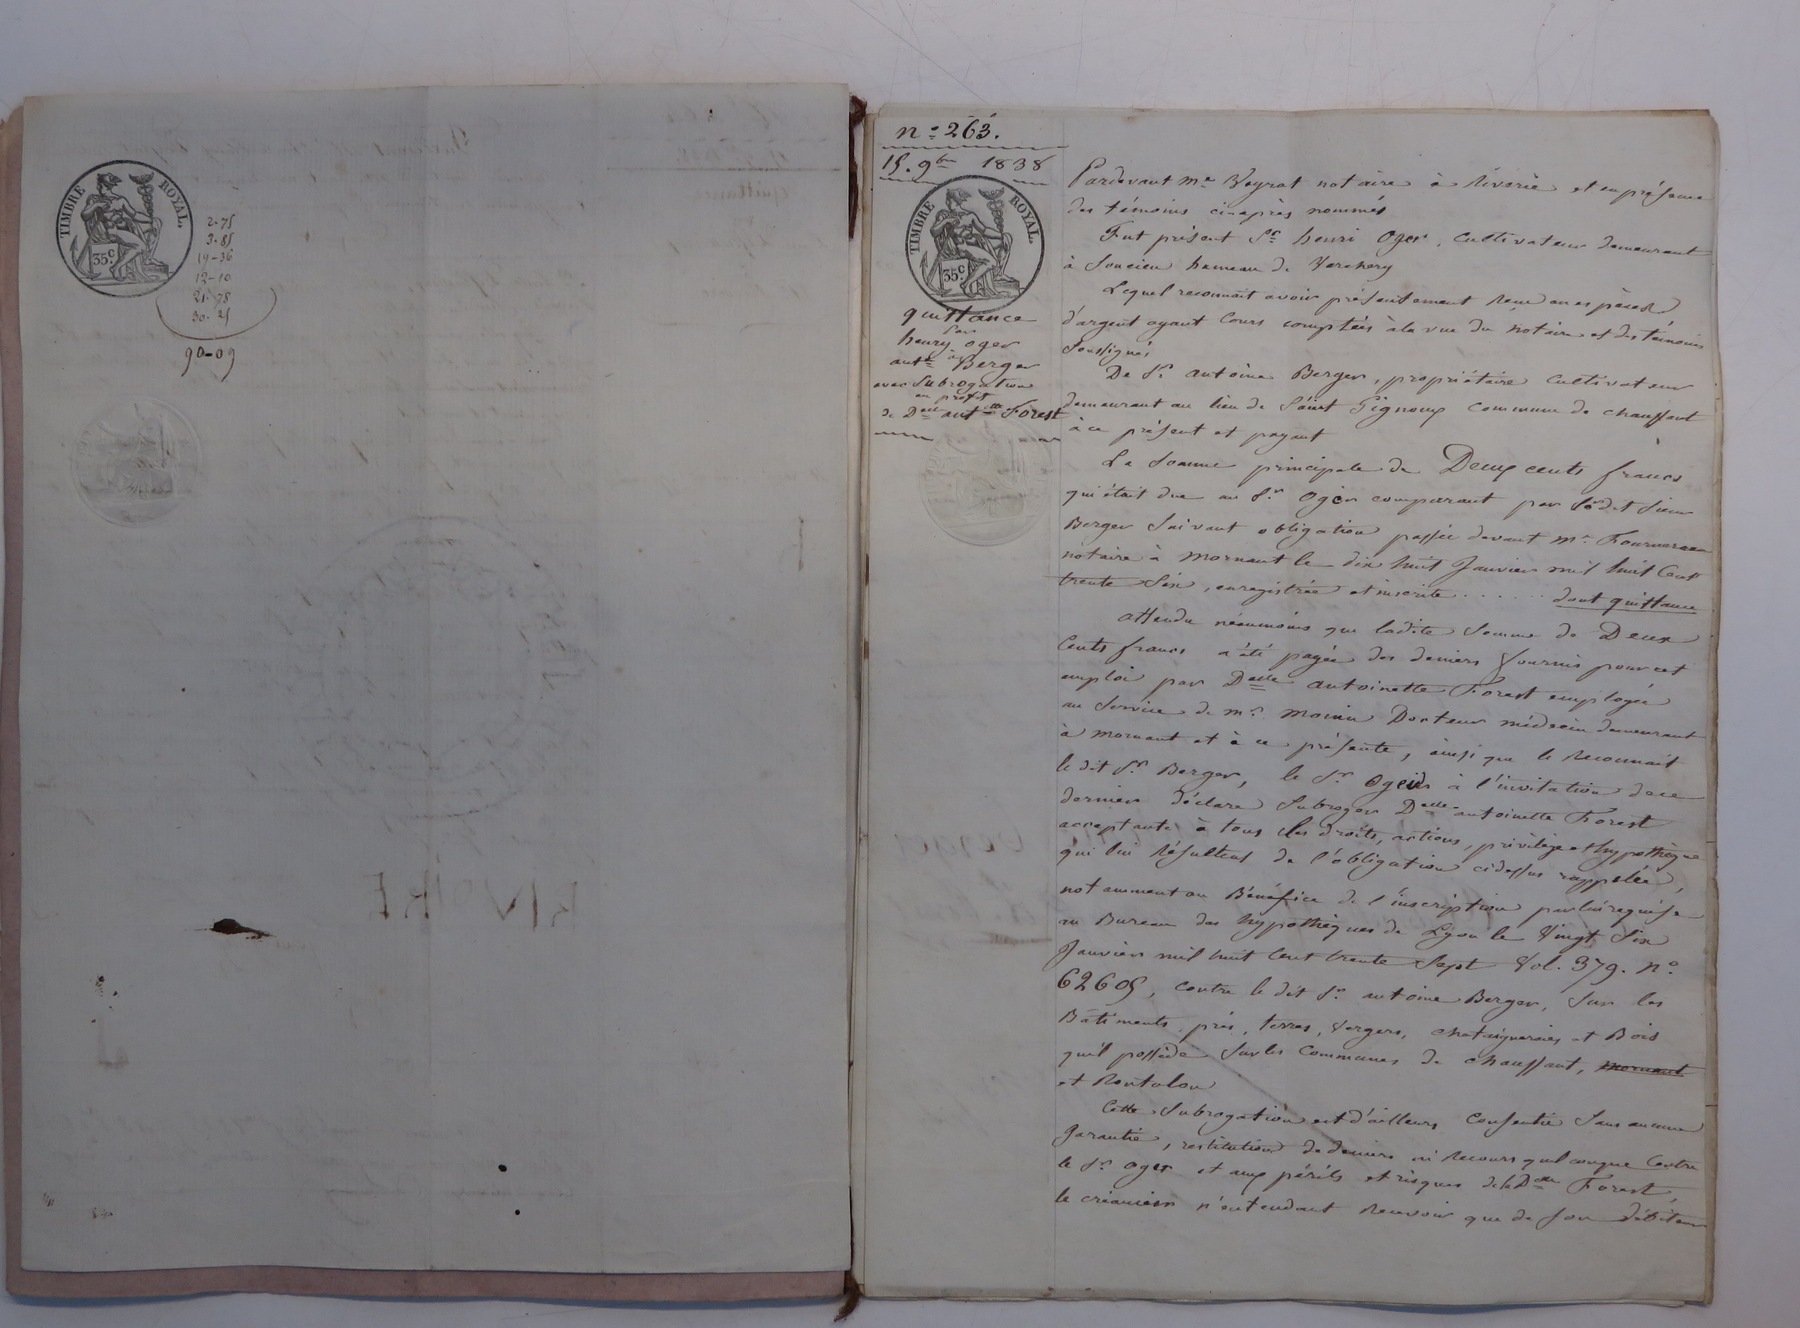 TIMBRE ROYAL
35c
2-75
3-85
19-36
12-10
21-78
30-25
90-09
n° 263.
15. 9bre 1838
TIMBRE ROYAL.
35c
quittance
par
henry oger
à
ante Berger
avec Subrogation
au profit
de Delle antte Forest
Pardevant me Veyrat notaire à Riverie et en présence
des témoins ciaprès nommés
Fut présent Sr henri Oger, Cultivateur demeurant
à Soucieu hameau de Verchery
Lequel reconnait avoir présentement reçu en espèces
d'argent ayant Cours comptées à la vue du notaire et des témoins
Soussignés
De Sr. antoine Berger, propriétaire Cultivateur
demeurant au lieu de Saint Gignoux commune de chaussant
à ce présent et payant
La Somme principale de Deux cents francs
qui était due au Sr. Oger comparant par le dit Sieur
Berger Suivant obligation passée devant me
notaire à Mornant le dix huit Janvier mil huit Cent
trente Six, enregistrée et inscrite . . . . . . dont quittance
attendu néanmoins que ladite Somme de Deux
Cents francs a été payée des deniers fournis pour cet
emploi par Delle antoinette Forest employée
au Service de mr. Docteur médecin demeurant
à Mornant et à ce présente, ainsi que le Reconnait
le dit Sr. Berger, le Sr. Oger à l'invitation de ce
dernier déclare Subroger Delle antoinette Forest
acceptante à tous les droits, actions, privilège et hypothèque
qui lui Résultent de l'obligation cidessus rappelée,
notamment au Bénéfice de l'inscription par lui requise
au Bureau des hypothèques de Lyon le Vingt Six
Janvier mil huit Cent trente Sept Vol. 379. n°.
62605, contre le dit Sr. antoine Berger, Sur les
Bâtiments, prés, terres, Vergers, chataigneraies et Bois
qu'il possède Sur les Communes de chaussant, mornant
et Rontalon
Cette Subrogation est d'ailleurs Consentie Sans aucune
garantie, restitution de deniers ni Recours quelconque Contre
le Sr. Oger et aux périls et risques de la Delle Forest,
le créancier n'entendant Recevoir que de Son débiteur
RIVOIRE